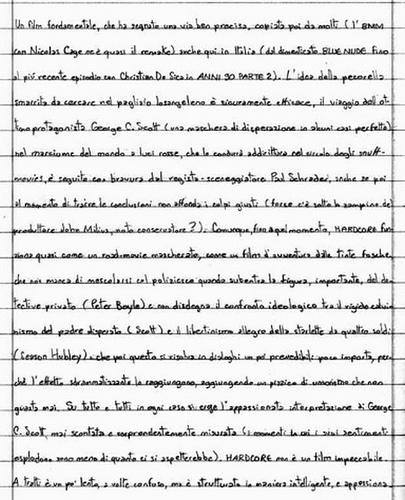 Un film fondamentale, che ha segnato una via ben precisa, copiata poi da molti (l'8MM
con Nicolas Cage ne è quasi il remake) anche qui in Italia (dal dimenticato BLUE NUDE fino
al più recente episodio con Christian De Sica in ANNI 90 PARTE 2). L'idea della pecorella
smarrita da cercare nel pagliaio losangeleno è sicuramente efficace, il viaggio dell'ot-
timo protagonista George C. Scott (una maschera di disperazione in alcuni casi perfetta)
nel marciume del mondo a luci rosse, che lo condurrà addirittura nel circolo degli snuff-
movies, è seguito con bravura dal regista-sceneggiatore Paul Schrader, anche se poi
al momento di trarre le conclusioni non affonda i colpi giusti (forse c'è sotto lo zampino del
produttore John Milius, noto conservatore?). Comunque, fino a quel momento, HARDCORE fun
ziona quasi come un roadmovie mascherato, come un film d'avventura dalle tinte fosche,
che non manca di mescolarsi col poliziesco quando subentra la figura, importante, del de-
tective privato (Peter Boyle) e non disdegna il confronto ideologico tra il rigido calvi-
nismo del padre disperato (Scott) e il libertinismo allegro della starlette da quattro soldi
(Season Hubley): che poi questo si risolva in dialoghi un po' prevedibili poco importa, per-
ché l'effetto sdrammatizzante lo raggiungono, aggiungendo un pizzico di umorismo che non
guasta mai. Su tutto e tutti in ogni caso si erge l'appassionata interpretazione di George
C. Scott, mai scontata e sorprendentemente misurata (i momenti in cui i suoi sentimenti
esplodono sono meno di quanto ci si aspetterebbe). HARDCORE non è un film impeccabile.
A tratti è un po' lento, a volte confuso, ma è strutturato in maniera intelligente, e appassiona